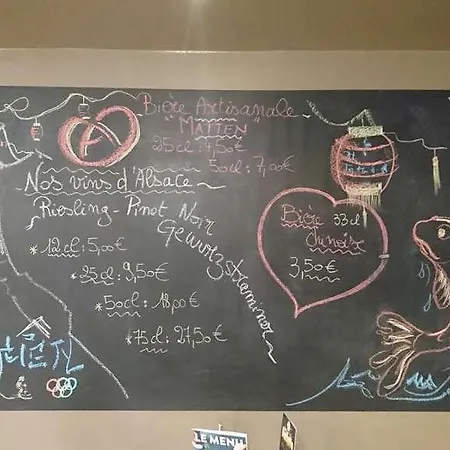 Bière Artisanale
"MATTEN"
25cl: 4,50€
50cl: 7,00€
Nos vins d'Alsace
Riesling - Pinot Noir
Gewurztraminer
* 12cl: 5,00€
* 25cl: 9,50€
* 50cl: 18,00€
* 75cl: 27,50€
Bière 33cl
Chinoise
3,50€
LE MENU